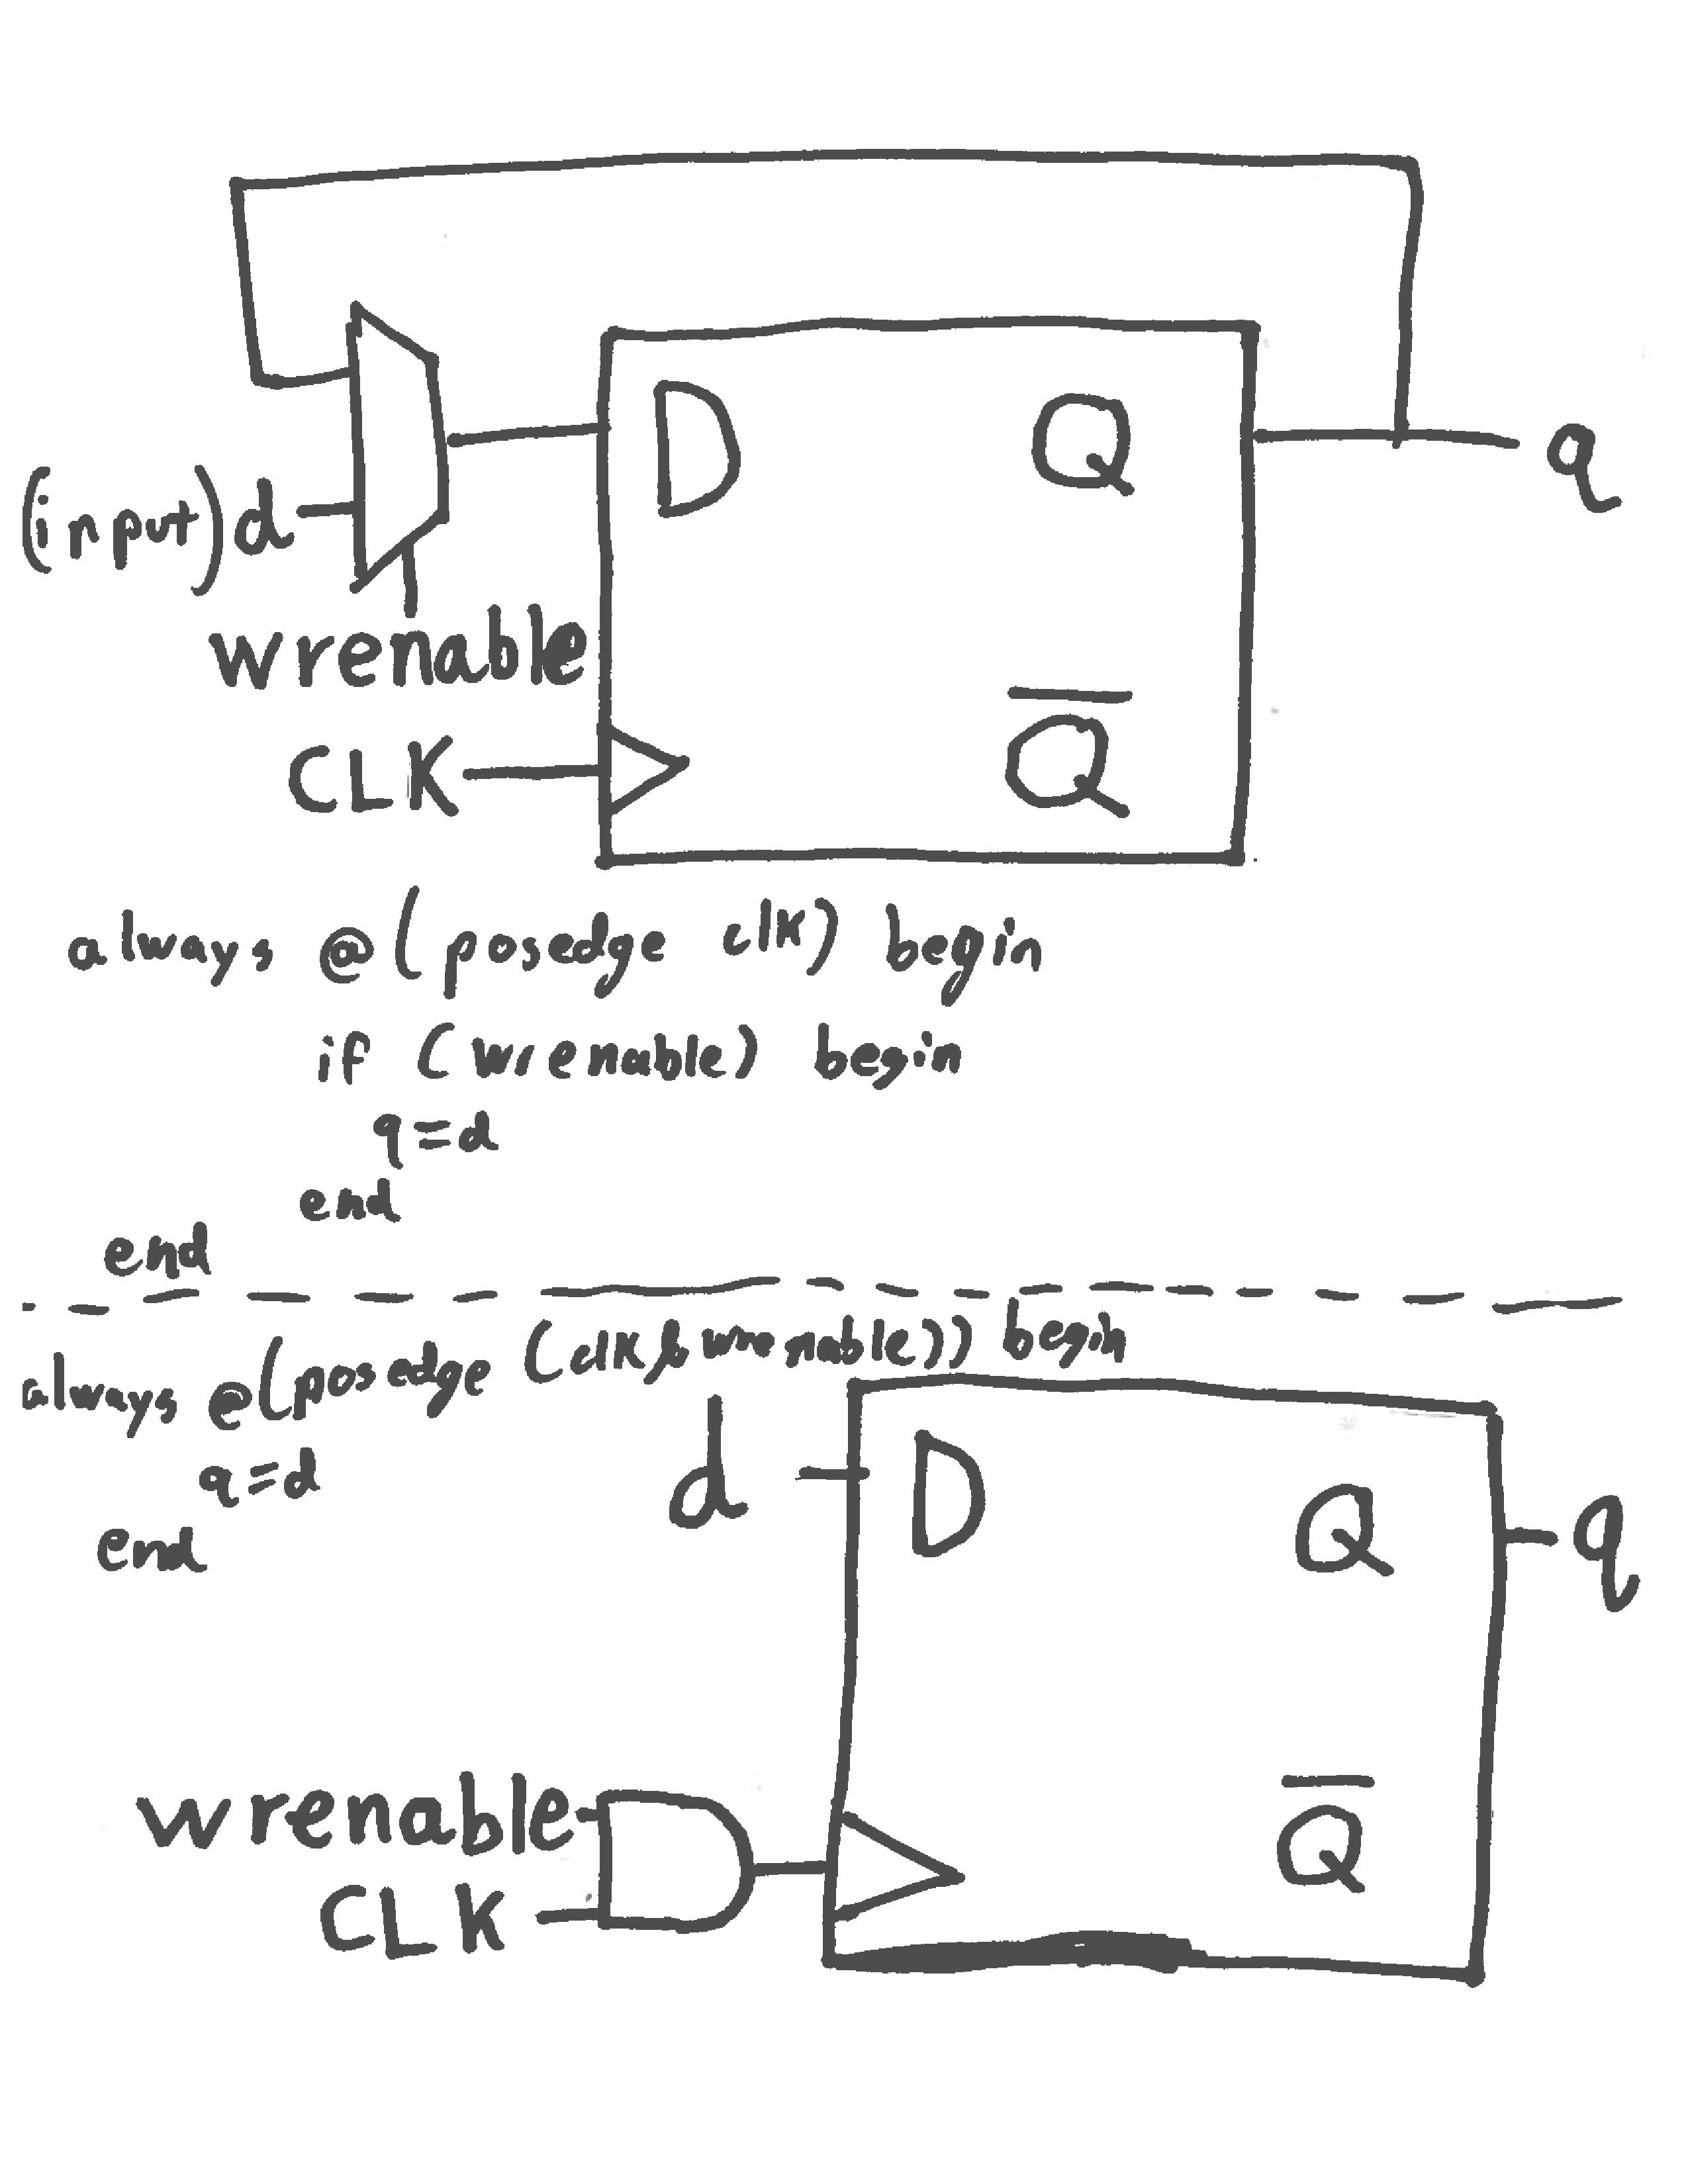 D Q q
(input) d
wrenable
CLK Q̅
always @(posedge clk) begin
if (wrenable) begin
q=d
end
end
always @(posedge (clk & wrenable)) begin
q=d
end
d D Q q
wrenable
CLK Q̅